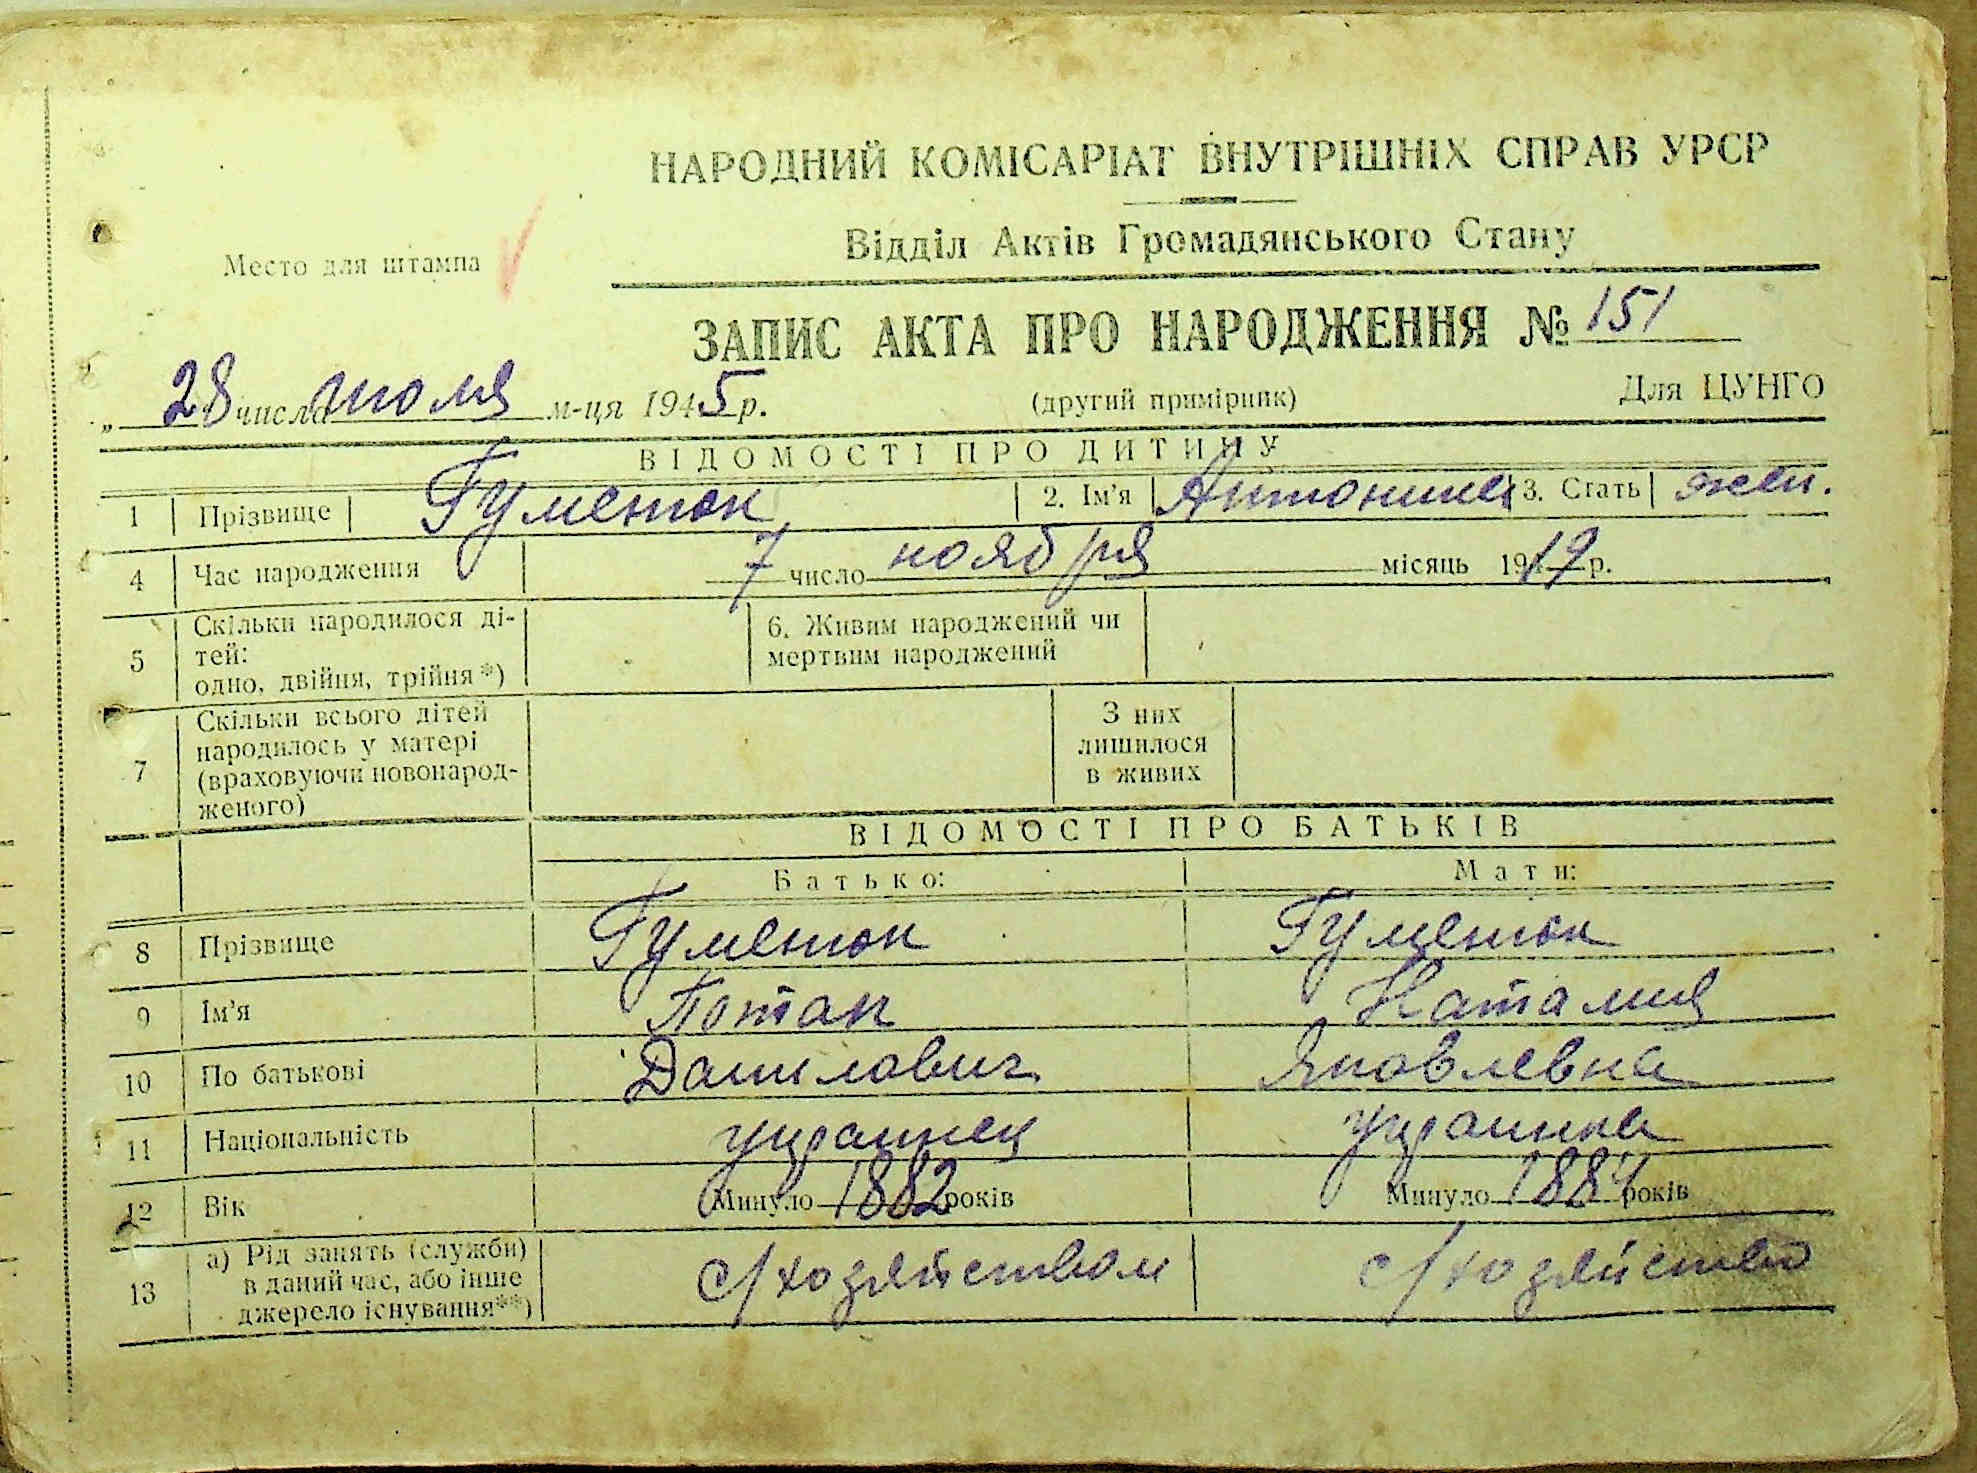 НАРОДНИЙ КОМІСАРІАТ ВНУТРІШНІХ СПРАВ УРСР
Відділ Актів Громадянського Стану
Место для штампа
ЗАПИС АКТА ПРО НАРОДЖЕННЯ № 151
„ 28 числа июля м-ця 1945 р. (другий примірник) Для ЦУНГО
ВІДОМОСТІ ПРО ДИТИНУ
1 Прізвище Гуменюк 2. Ім'я Антонина 3. Стать жен.
4 Час народження 7 число ноября місяць 1919 р.
5 Скільки народилося ді-
тей:
одно, двійня, трійня*)
6. Живим народжений чи
мертвим народжений
7 Скільки всього дітей
народилось у матері
(враховуючи новонарод-
женого)
З них
лишилося
в живих
ВІДОМОСТІ ПРО БАТЬКІВ
Батько: Мати:
8 Прізвище Гуменюк Гуменюк
9 Ім'я Потап Наталия
10 По батькові Данилович Яковлевна
11 Національність украинец украинка
12 Вік Минуло 1882 років Минуло 1884 років
13 а) Рід занять (служби)
в даний час, або інше
джерело існування**)
с/хозяйством с/хозяйство